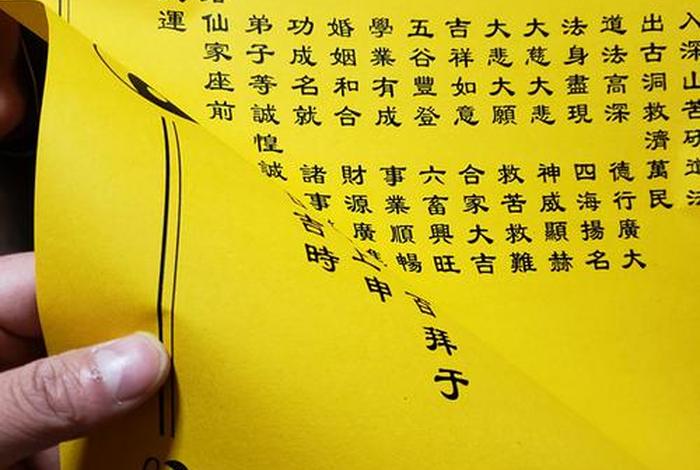 入深山苦研道法
出古洞救濟萬民
道法高深 德行廣大
法身盡現 四海揚名
大慈大悲 神威顯赫
大悲大願 救苦救難
吉祥如意 合家大吉
五谷豐登 六畜興旺
學業有成 事業順暢
婚姻和合 財源廣
功成名就 諸事
弟子等誠惶誠
仙家座前
運
百拜于
上申
吉時